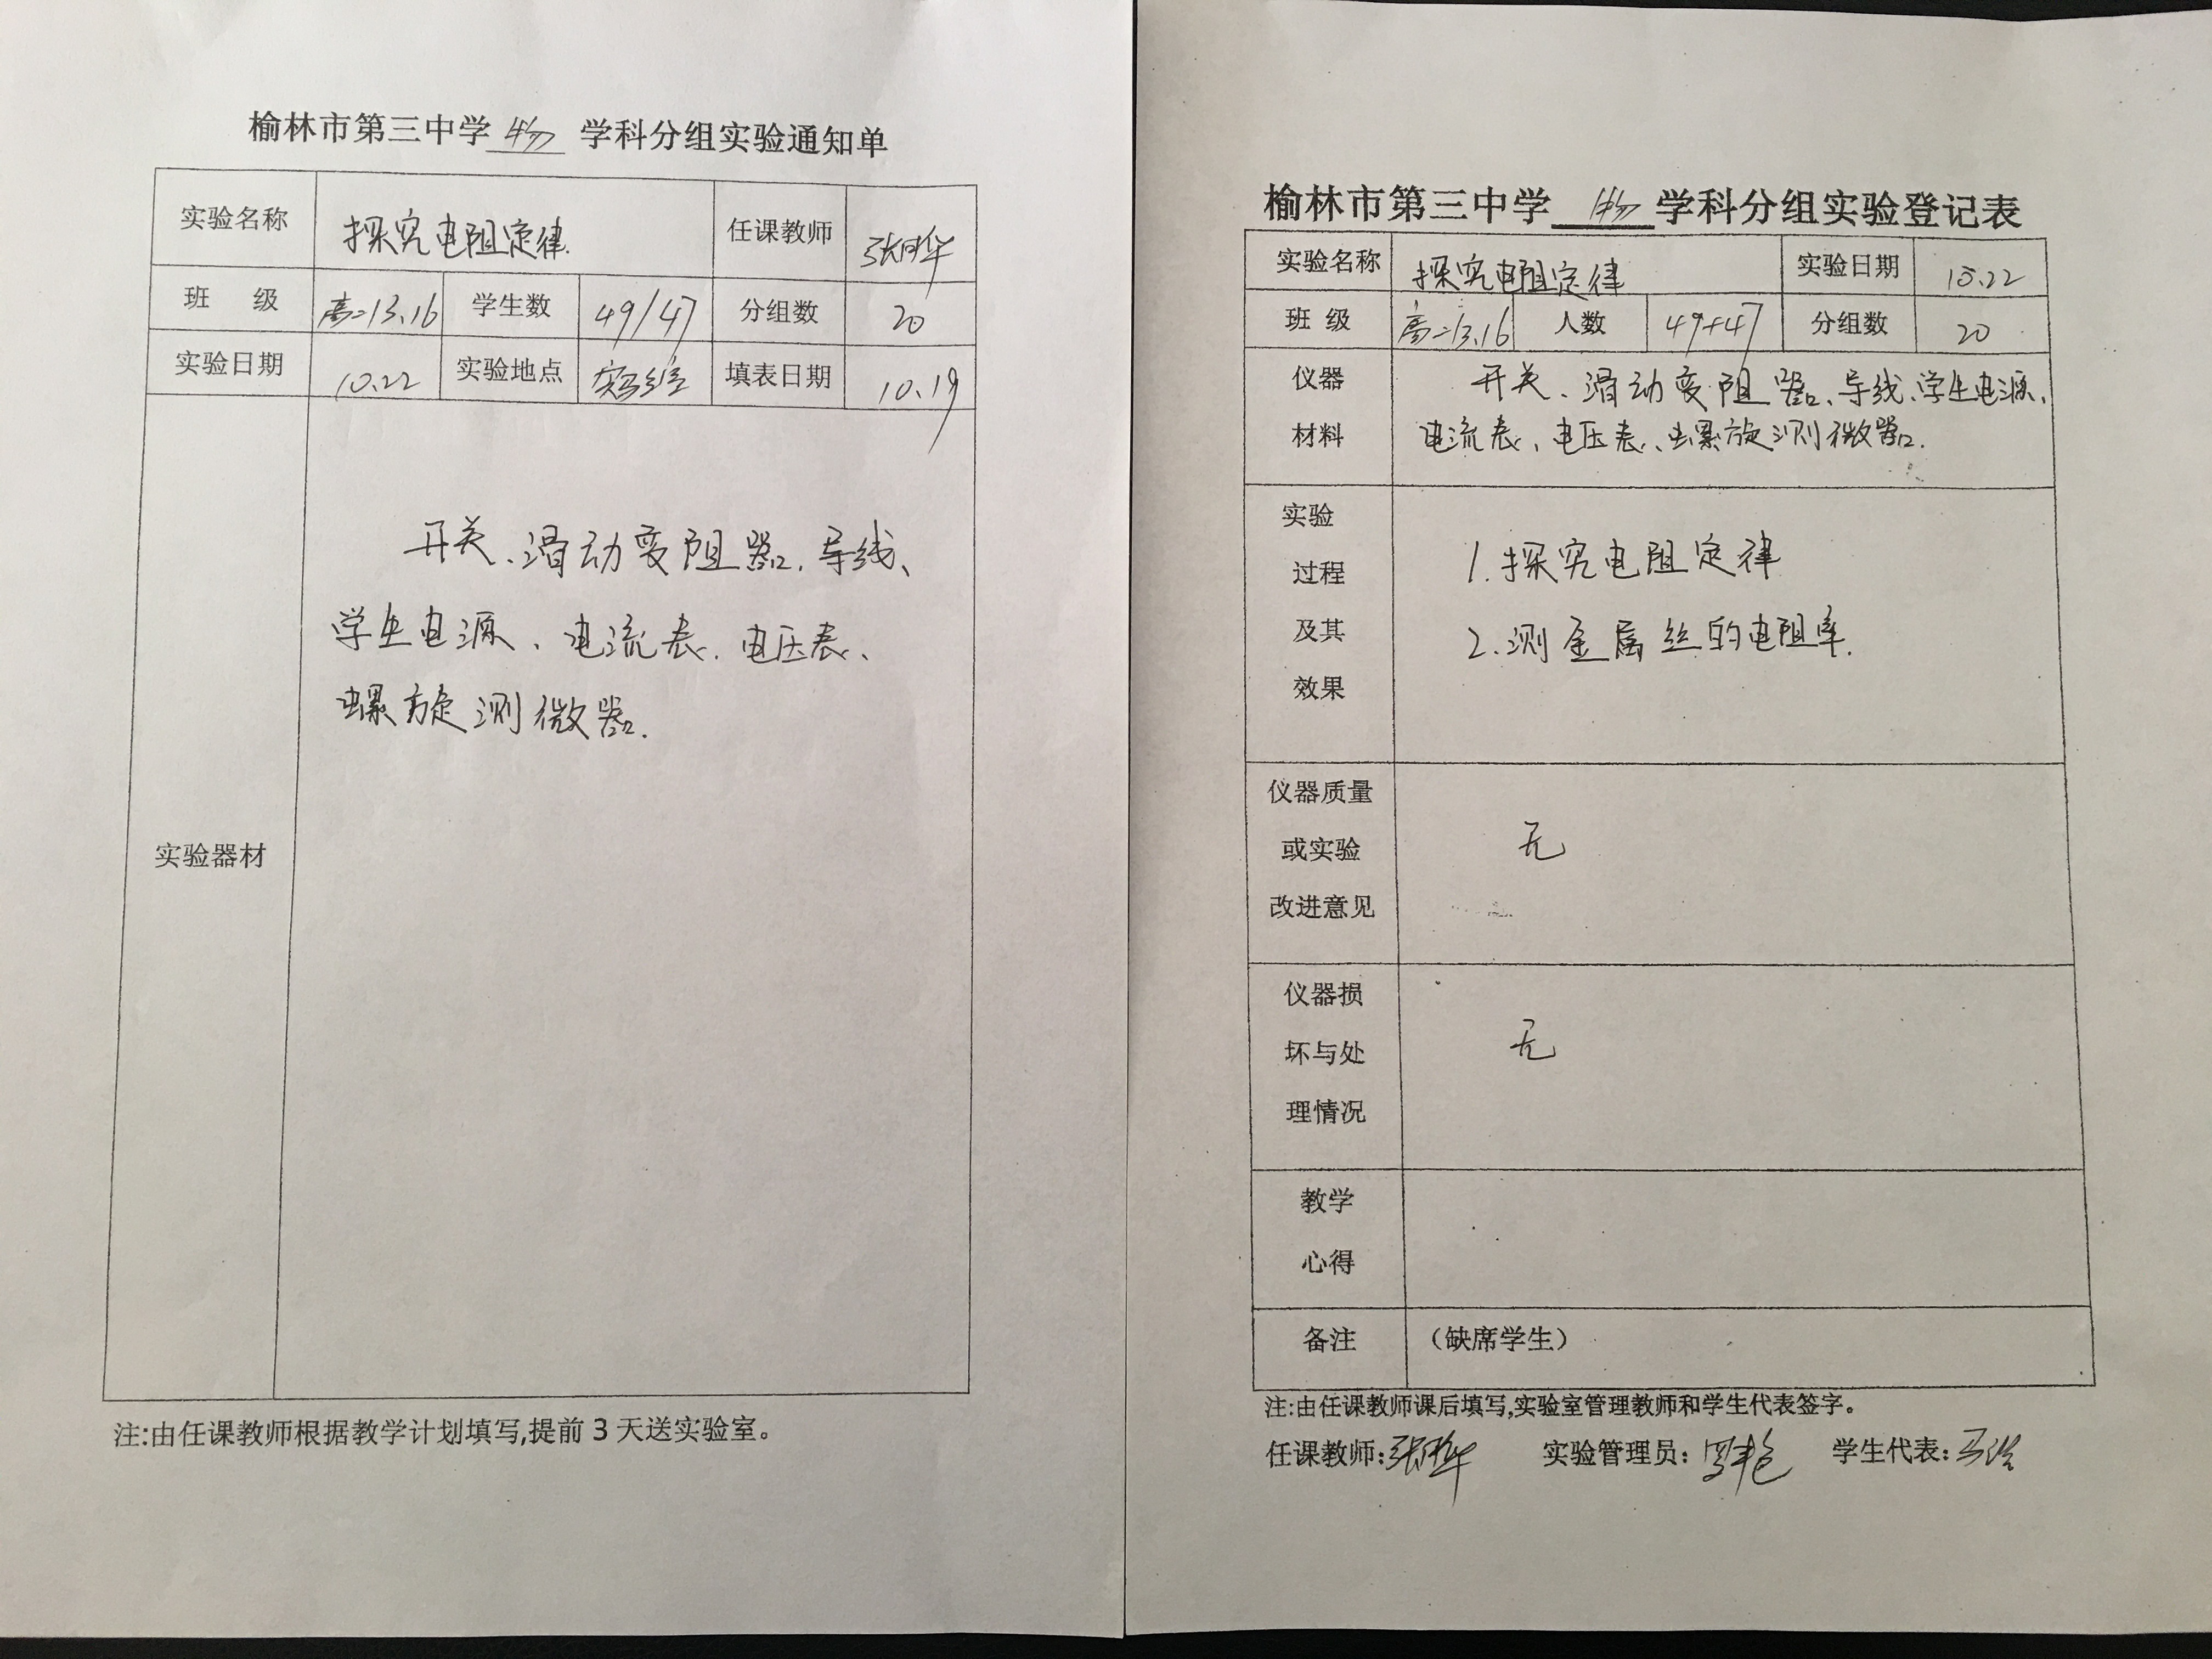 榆林市第三中学 物 学科分组实验通知单
实验名称 探究电阻定律. 任课教师
班 级 高二13.16 学生数 49/47 分组数 20
实验日期 10.22 实验地点 填表日期 10.19
实验器材
开关、滑动变阻器、导线、
学生电源、电流表、电压表、
螺旋测微器.
注:由任课教师根据教学计划填写,提前 3 天送实验室。
榆林市第三中学 物 学科分组实验登记表
实验名称 探究电阻定律 实验日期 10.22
班 级 高二13.16 人数 49+47 分组数 20
仪器 开关、滑动变阻器、导线、学生电源、
材料 电流表、电压表、螺旋测微器.
实验
过程 1.探究电阻定律
及其 2.测金属丝的电阻率.
效果
仪器质量
或实验 无
改进意见
仪器损
坏与处 无
理情况
教学
心得
备注 （缺席学生）
注:由任课教师课后填写,实验室管理教师和学生代表签字。
任课教师: 实验管理员: 学生代表: